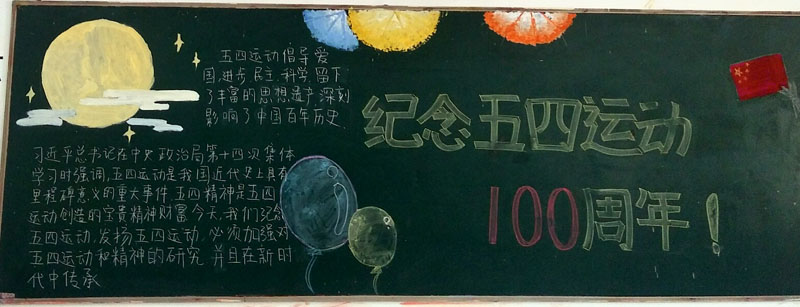 五四运动倡导爱
国,进步,民主,科学,留下
了丰富的思想遗产,深刻
影响了中国百年历史.
习近平总书记在中央政治局第十四次集体
学习时强调,五四运动是我国近代史上具有
里程碑意义的重大事件,五四精神是五四
运动创造的宝贵精神财富.今天,我们纪念
五四运动,发扬五四运动,必须加强对
五四运动和精神的研究,并且在新时
代中传承
纪念五四运动
100周年!